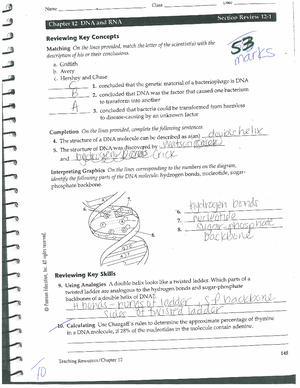 Name
Class
Date
Chapter 12 DNA and RNA
Section Review 12-1
Reviewing Key Concepts
53
marks.
Matching On the lines provided, match the letter of the scientist(s) with the
description of his or their conclusions.
a. Griffith
b. Avery
c. Hershey and Chase
C 1. concluded that the genetic material of a bacteriophage is DNA
B 2. concluded that DNA was the factor that caused one bacterium
to transform into another
A 3. concluded that bacteria could be transformed from harmless
to disease-causing by an unknown factor
Completion On the lines provided, complete the following sentences.
4. The structure of a DNA molecule can be described as a(an) double helix
5. The structure of DNA was discovered by Watson
and Crick
Interpreting Graphics On the lines corresponding to the numbers on the diagram,
identify the following parts of the DNA molecule: hydrogen bonds, nucleotide, sugar-
phosphate backbone.
6. hydrogen bonds
7. nucleotide
8. sugar-phosphate
backbone
Reviewing Key Skills
9. Using Analogies A double helix looks like a twisted ladder. Which parts of a
twisted ladder are analogous to the hydrogen bonds and sugar-phosphate
backbones of a double helix of DNA?
H bonds - rungs of ladder, S.P backbone
sides of twisted ladder
10. Calculating Use Chargaff's rules to determine the approximate percentage of thymine
in a DNA molecule, if 28% of the nucleotides in the molecule contain adenine.
© Pearson Education, Inc. All rights reserved.
Teaching Resources/Chapter 12
145
10